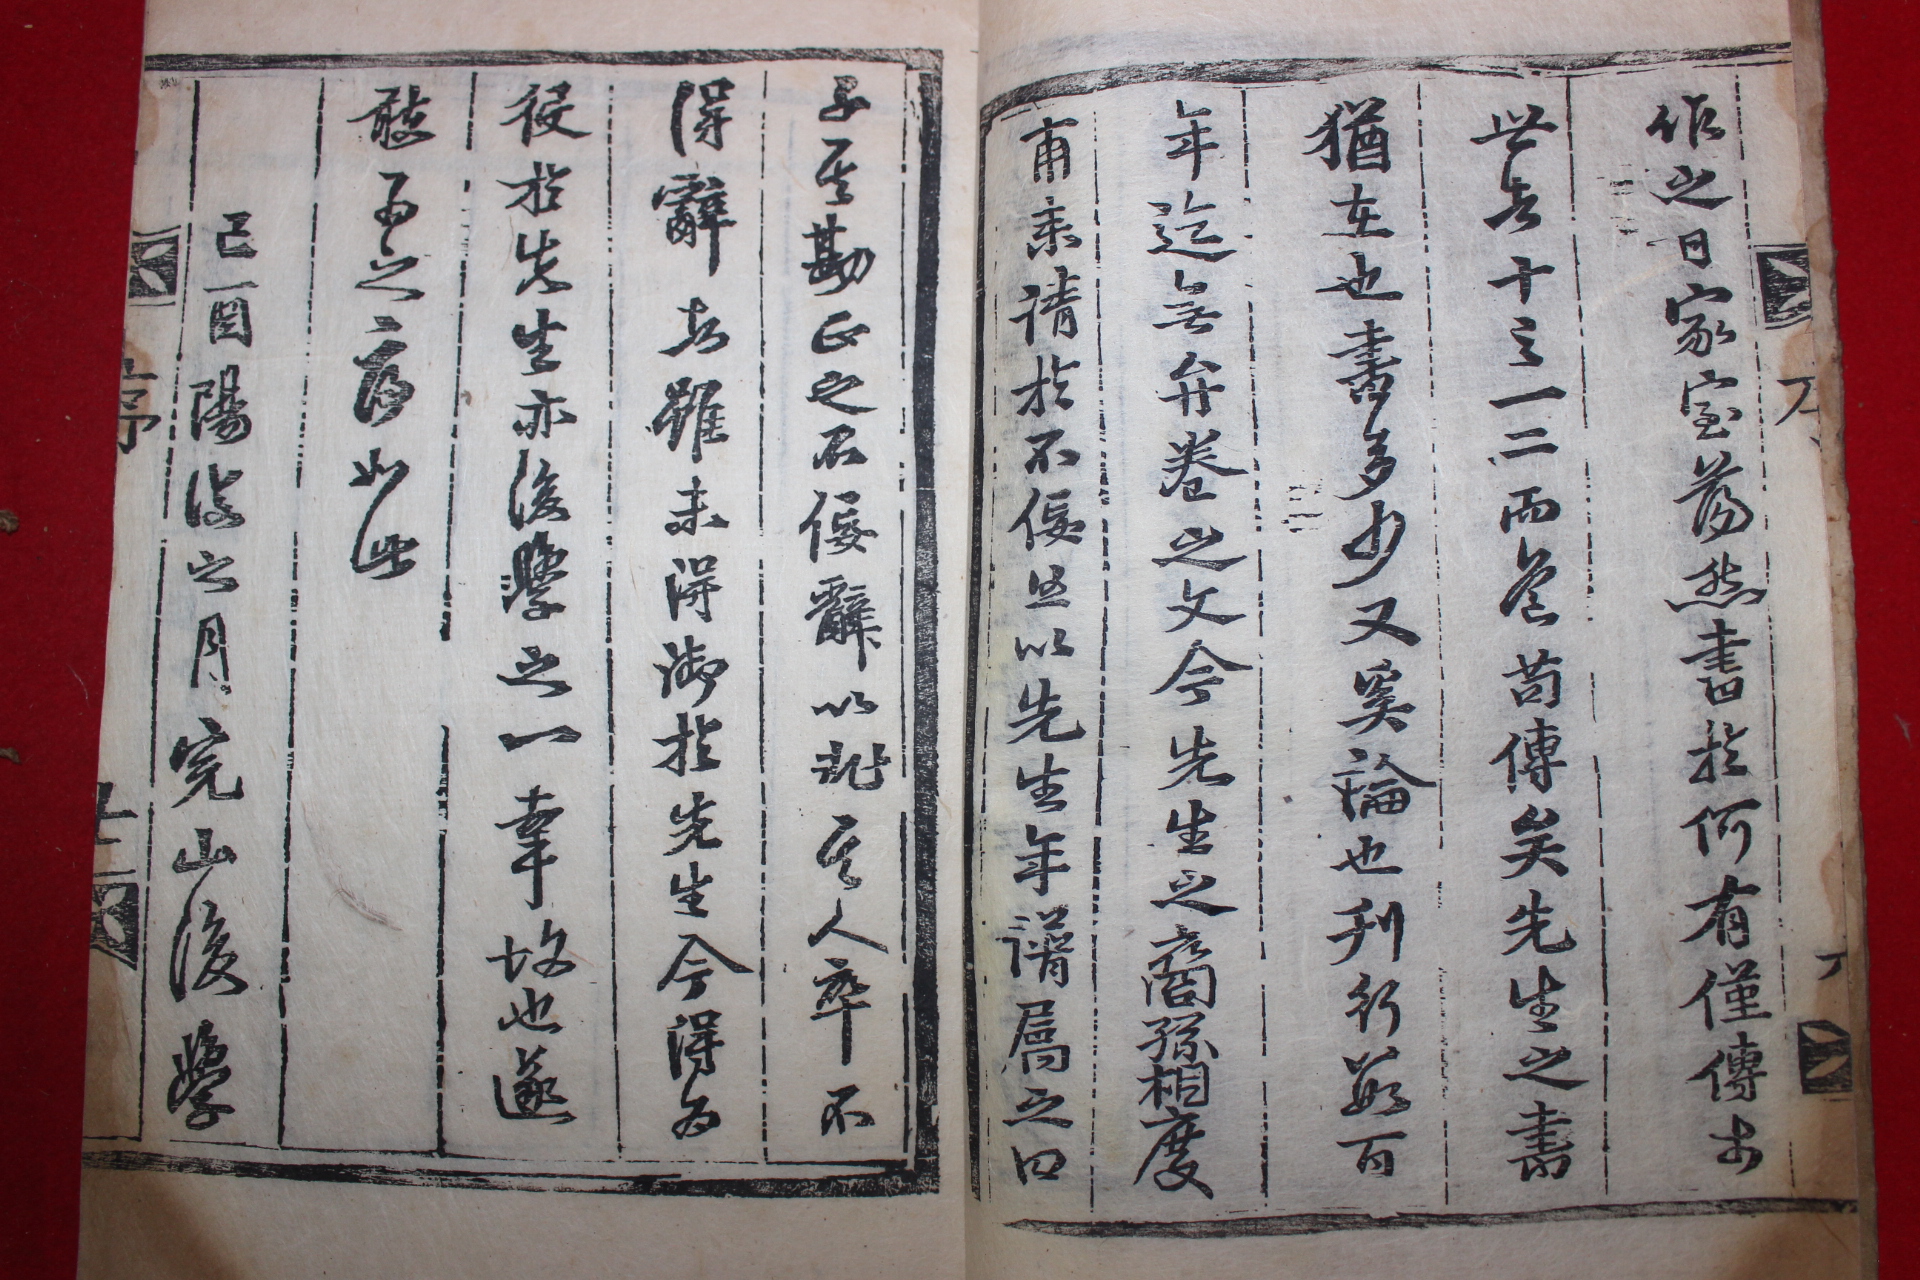 作之日家室蕩然書於何有僅傳於
世者十之一二而苟傳矣先生之書
猶在也書多少又奚論也刊行數百
年迄無弁卷之文今先生之裔孫相度
甫來請於不佞且以先生年譜屬之曰
子其勘正之不佞辭以非其人卒不
得辭者雖未得御於先生今得為
役於先生亦後學之一幸故也遂
敢為之序如此
己酉陽復之月完山後學
序